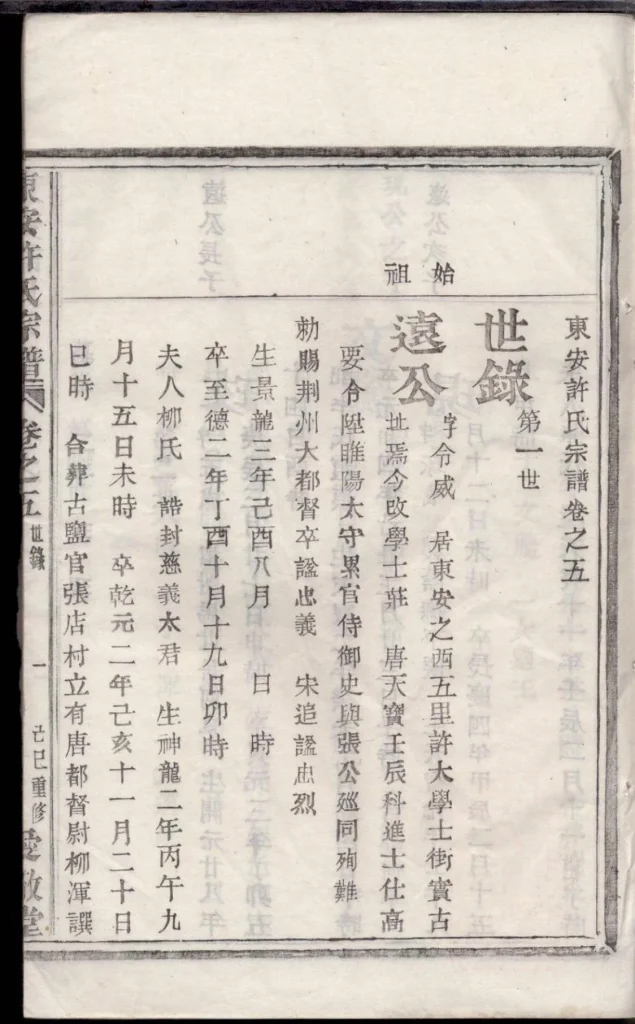 東安許氏宗譜卷之五
世錄
第一世
始祖
遠公
字令威　居東安之西五里許大學士街實古
址焉今改學士莊　唐天寶壬辰科進士仕高
要令陞睢陽太守累官侍御史與張公廵同殉難
勅賜荆州大都督卒諡忠義　宋追諡忠烈
生景龍三年己酉八月　日　時
卒至德二年丁酉十月十九日卯時
夫人柳氏　誥封慈義太君　生神龍二年丙午九
月十五日未時　卒乾元二年己亥十一月二十日
巳時　合葬古鹽官張店村立有唐都督尉柳渾譔
東安許氏宗譜
卷之五
世錄
一
己巳重修
愛敬堂